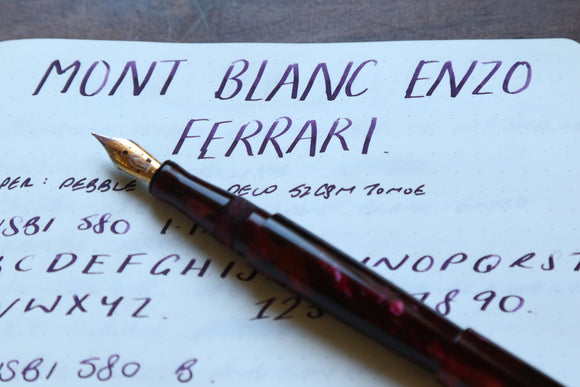 MONT BLANC ENZO
FERRARI.
PER: PEBBLE DELO 52GSM TOMOE
SBI 580
CDEFGHI NOPQRST
VWXYZ. 123 7890.
SBI 580 B